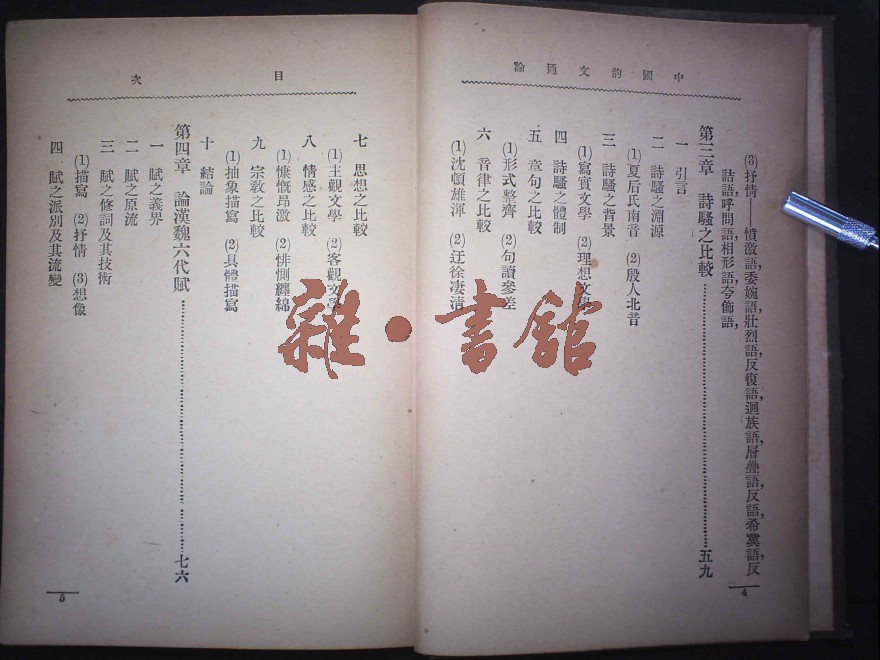 中國韵文通論
(3)抒情——憤激語,委婉語,壯烈語,反復語,迴族語,層疊語,反語,希冀語,反
詰語呼問語,相形語,夸飾語,
第三章 詩騷之比較 五九
一 引言
二 詩騷之淵源
(1)夏后氏南音 (2)殷人北音
三 詩騷之背景
(1)寫實文學 (2)理想文學
四 詩騷之體制
五 章句之比較
(1)形式整齊 (2)句讀參差
六 音律之比較
(1)沈頓雄渾 (2)汪徐凄清
4
目次
七 思想之比較
(1)主觀文學 (2)客觀文學
八 情感之比較
(1)慷慨昂激 (2)悱惻纏綿
九 宗教之比較
(1)抽象描寫 (2)具體描寫
十 結論
第四章 論漢魏六代賦 七六
一 賦之義界
二 賦之原流
三 賦之修詞及其技術
(1)描寫 (2)抒情 (3)想像
四 賦之派別及其流變
5
雜·書館